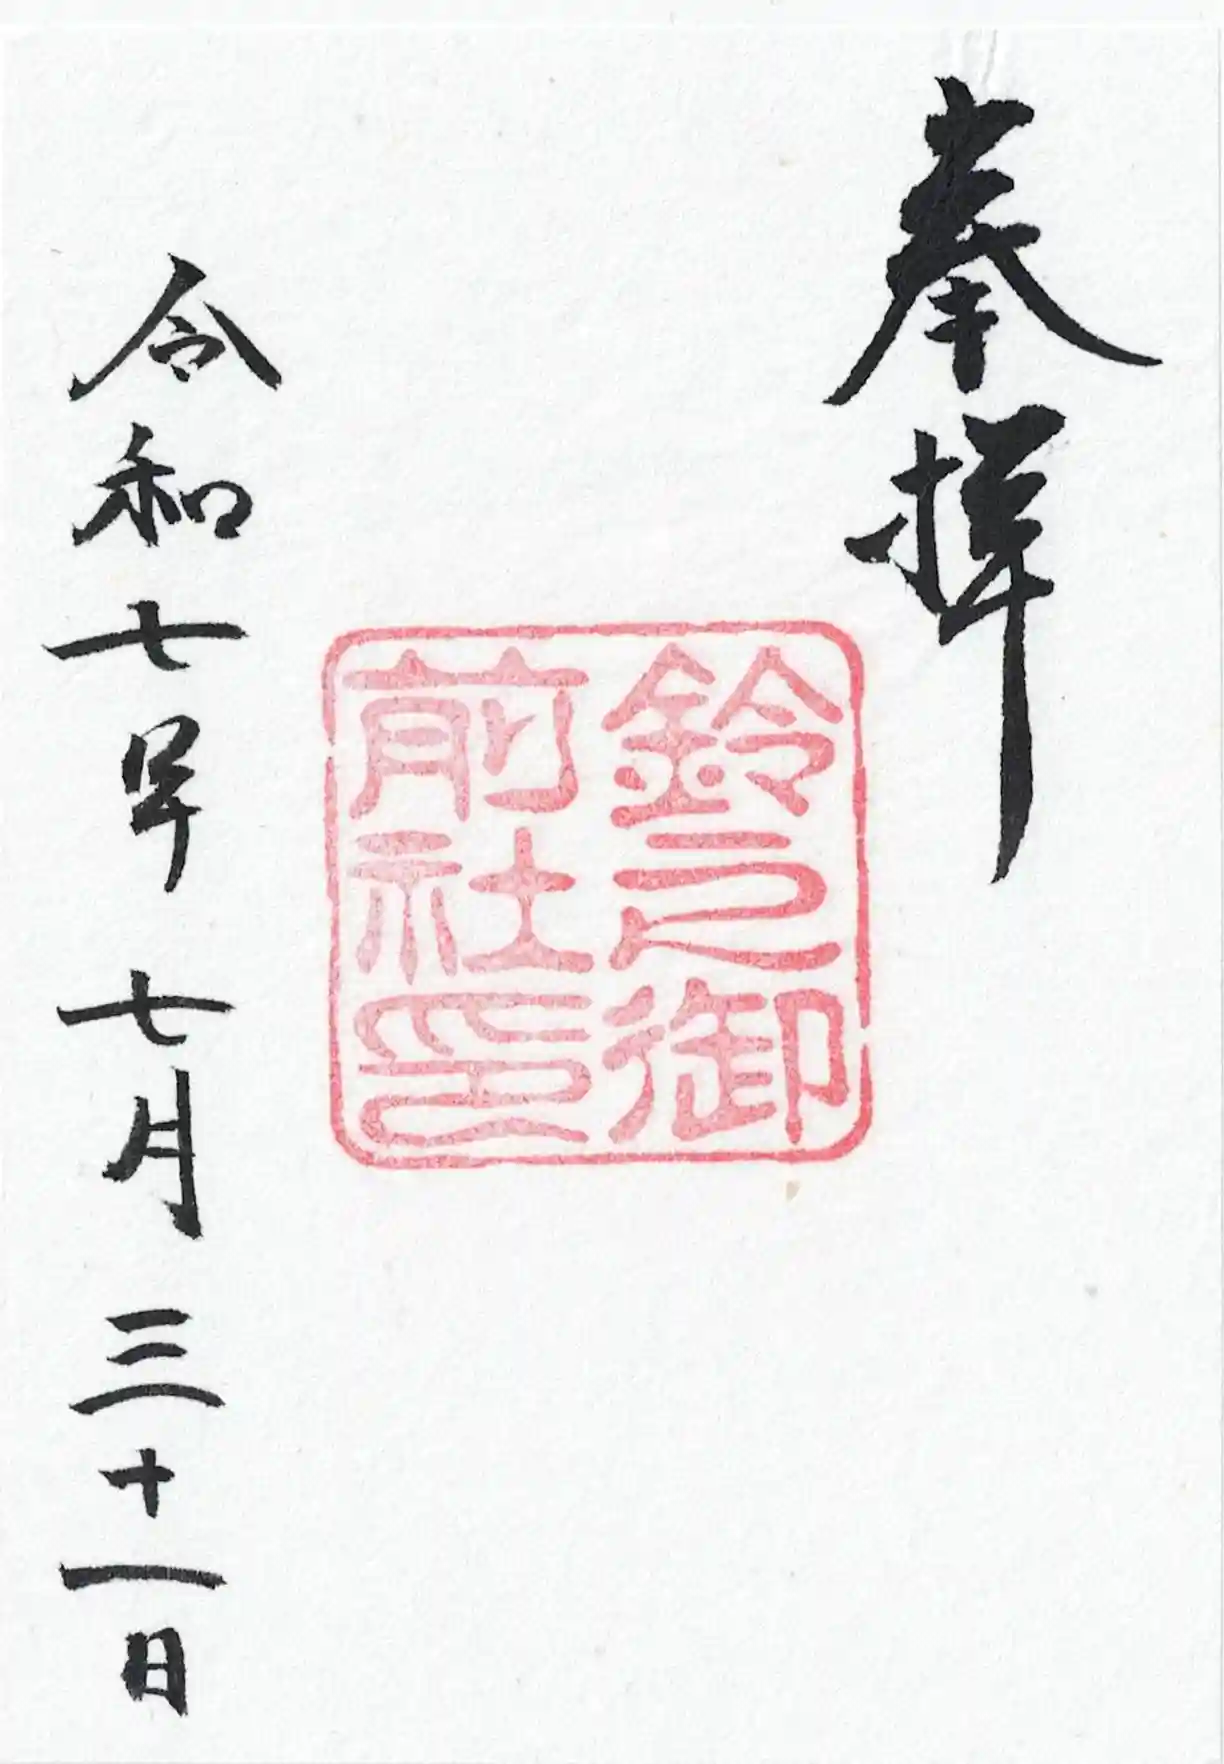 奉拝
鈴之御
前社印
令和七年 七月 三十一日